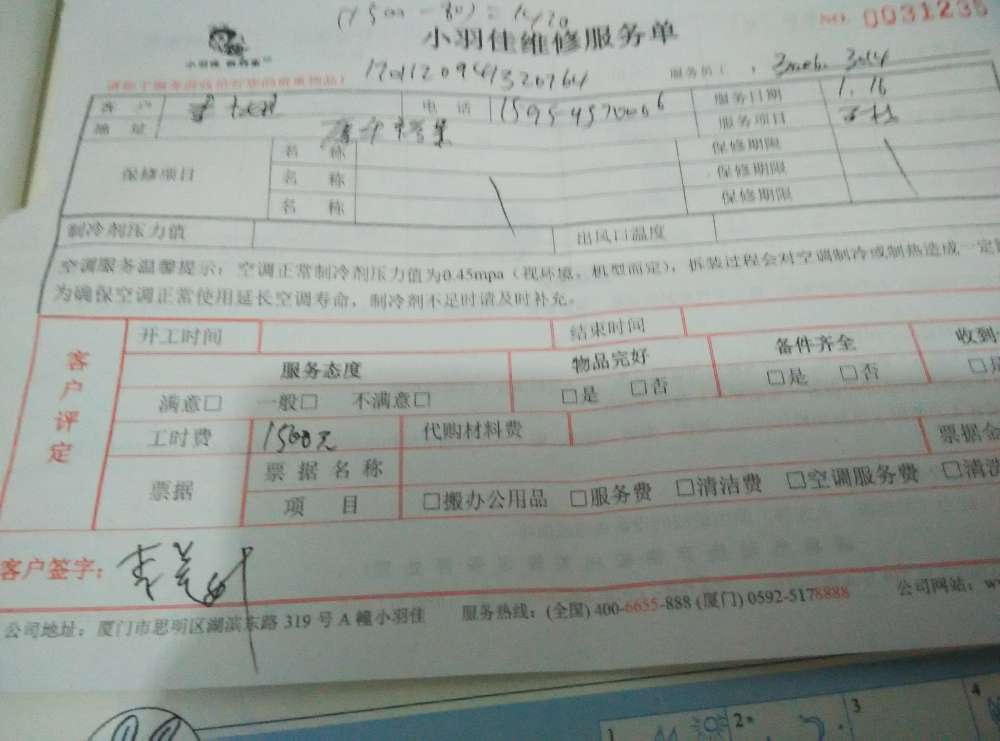 NO. 0031235
小羽佳维修服务单
小羽佳
1701120941320764
服务员(
客 户
电 话
服务日期 1.16
地 址
服务项目
保修项目 名 称 保修期限
名 称 保修期限
名 称 保修期限
制冷剂压力值 出风口温度
空调服务温馨提示:空调正常制冷剂压力值为0.45mpa(视环境、机型而定),拆装过程会对空调制冷或制热造成一定
为确保空调正常使用延长空调寿命,制冷剂不足时请及时补充。
客户评定
开工时间 结束时间
服务态度 物品完好 备件齐全 收到
满意□ 一般□ 不满意□ □是 □否 □是 □否 □是
工时费 1500元 代购材料费 票据金
票据 票据名称
项 目 □搬办公用品 □服务费 □清洁费 □空调服务费 □清洗
客户签字:
公司地址:厦门市思明区湖滨东路 319 号 A 幢小羽佳 服务热线:(全国) 400-6655-888 (厦门) 0592-5178888 公司网站:w
1 2 3 4